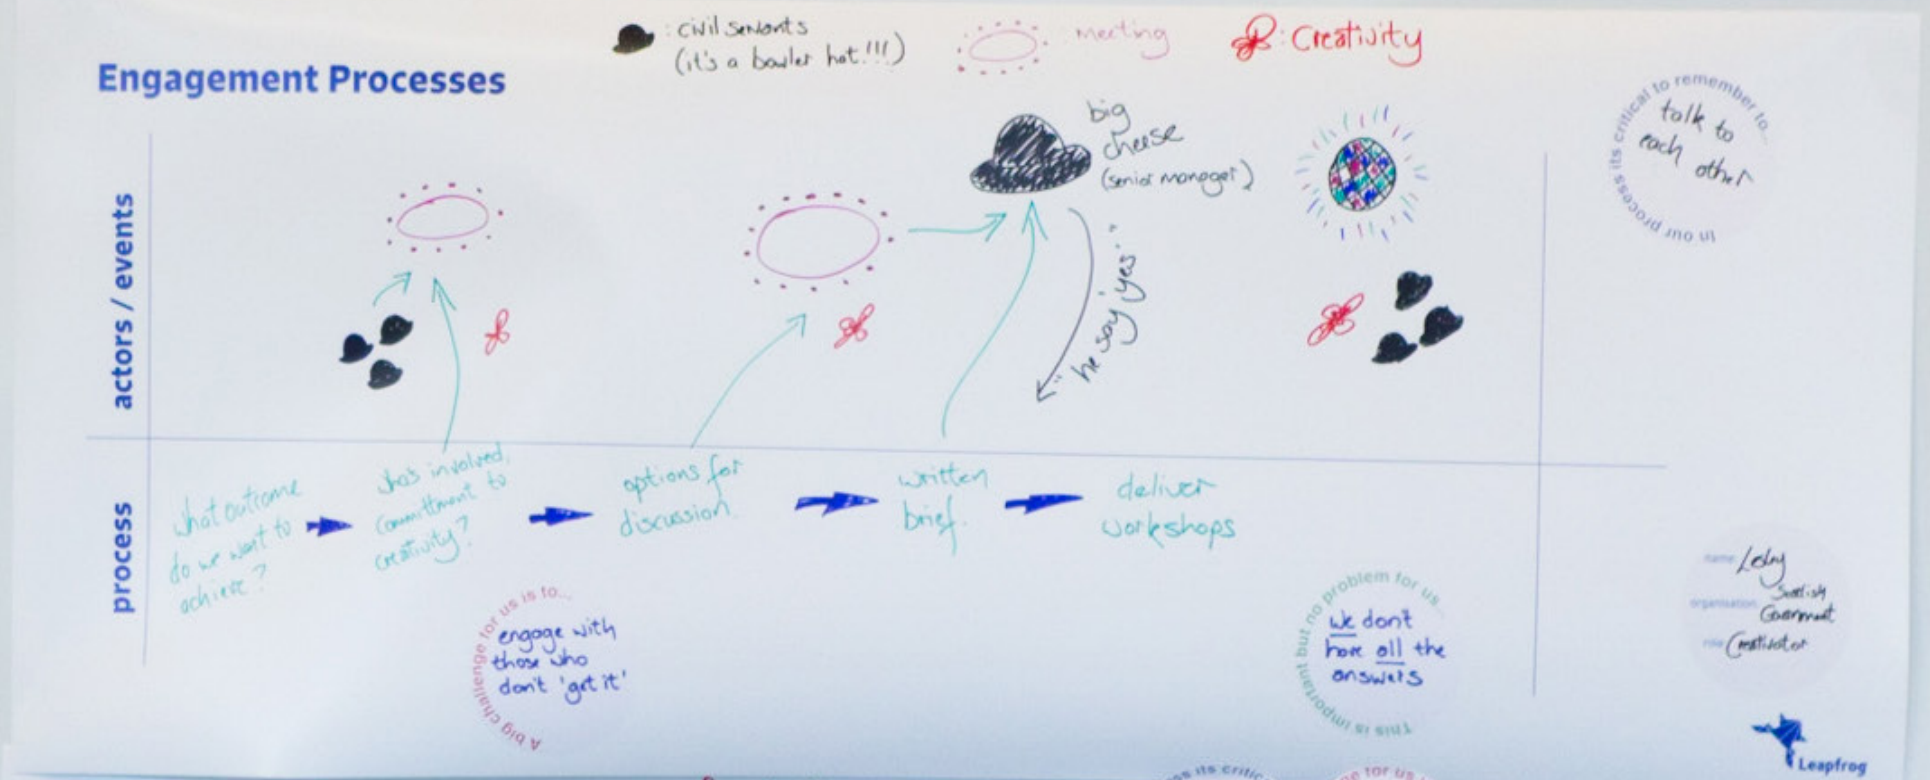 : civil servants
(it's a bowler hat!!!)
: Meeting
: Creativity
Engagement Processes
big
cheese
(senior manager)
"he say 'yes'"
in our process its critical to remember to...
talk to
each other
actors / events
process
what outcome
do we want to
achieve?
who's involved,
committment to
creativity?
options for
discussion.
written
brief.
deliver
workshops
A big challenge for us is to...
engage with
those who
don't 'get it'
This is important but no problem for us...
we don't
have all the
answers
name:
organisation:
Scottish
Government
role:
Creativator
Leapfrog
ss its critic
e for us